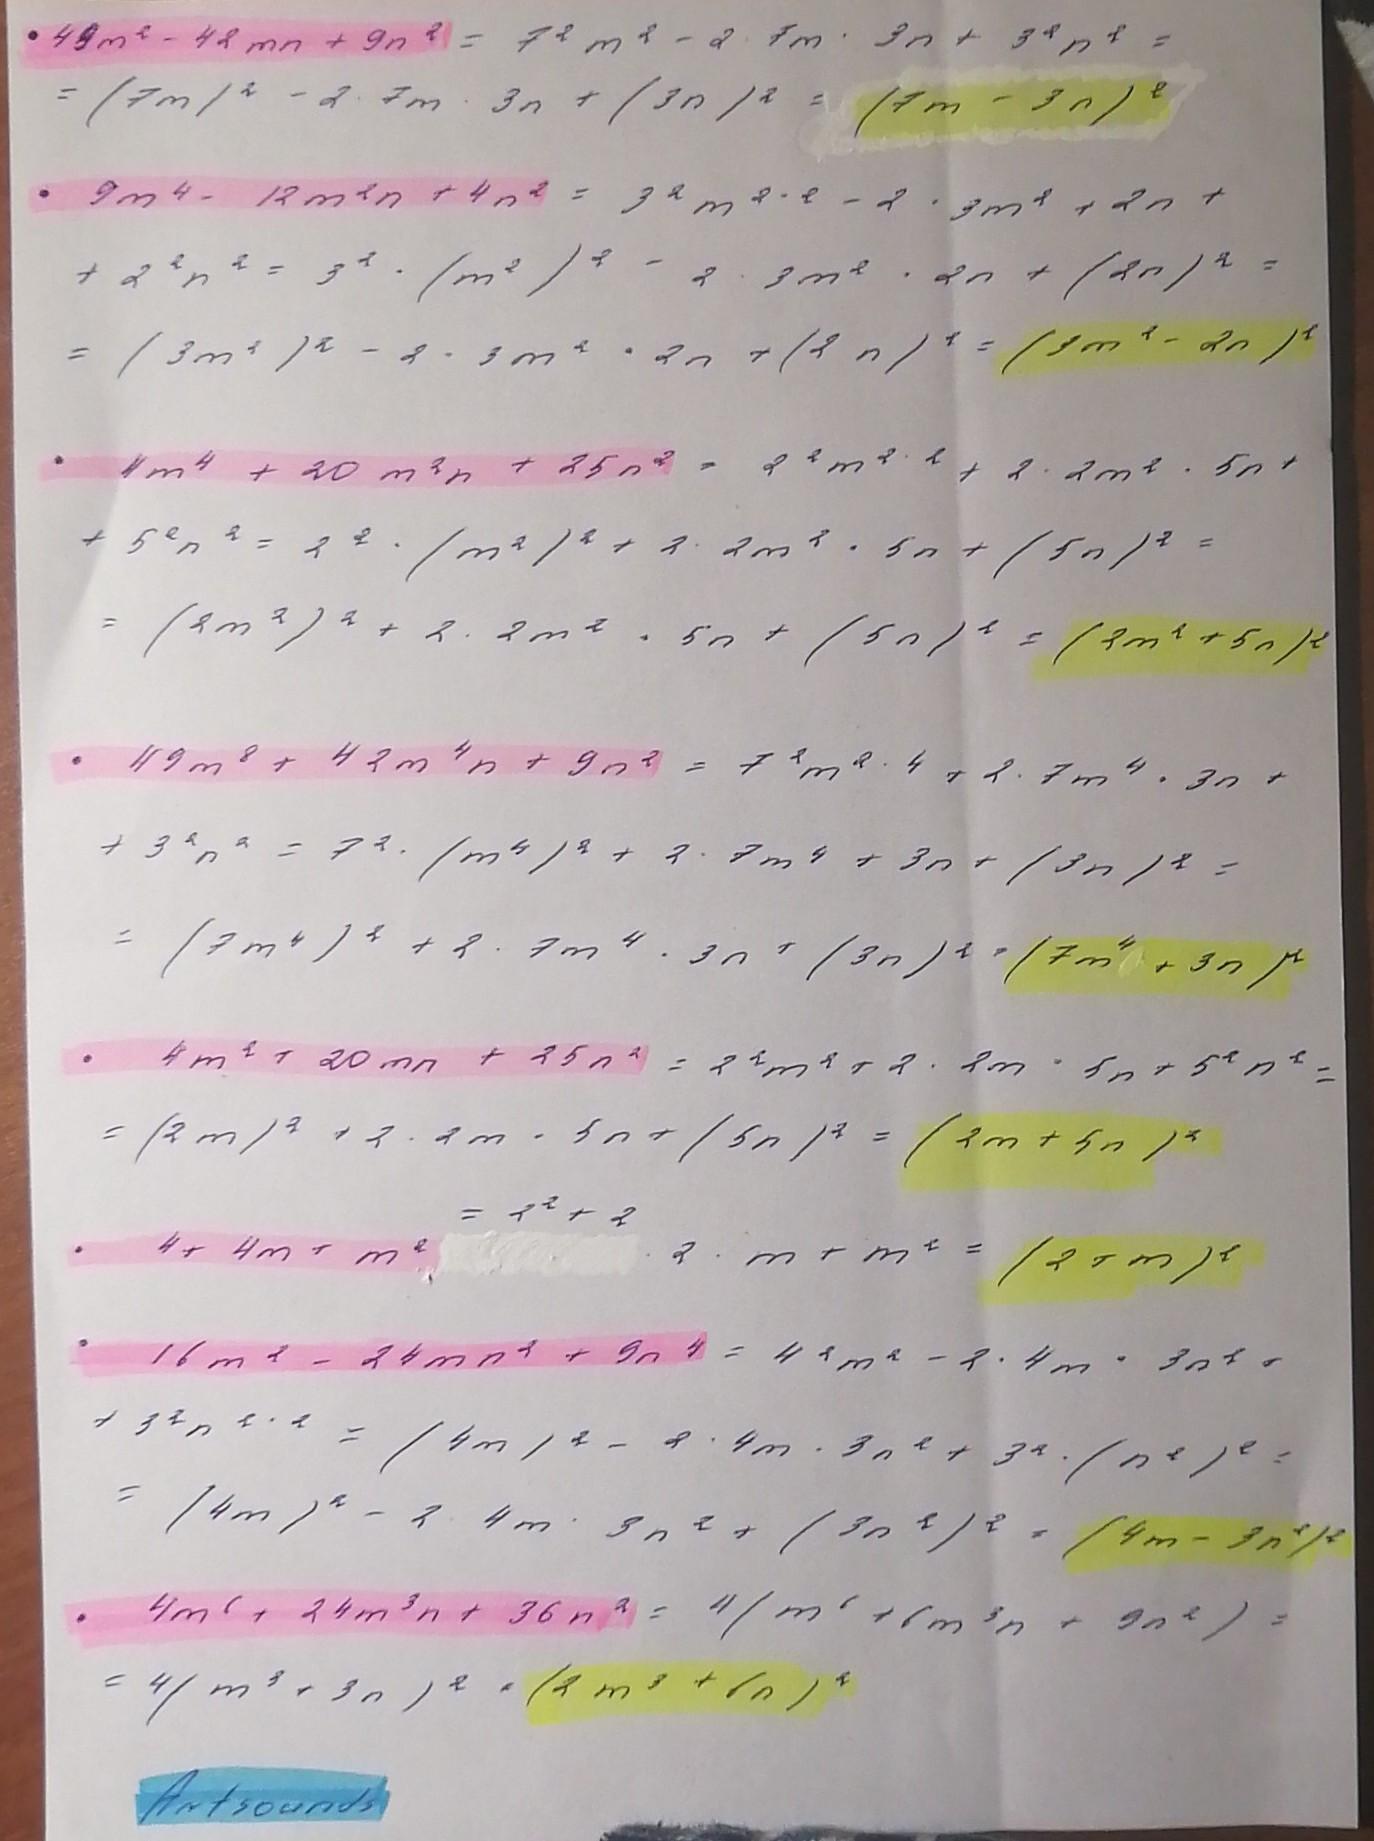 • 49m² - 42mn + 9n² = 7²m² - 2·7m·3n + 3²n² =
= (7m)² - 2·7m·3n + (3n)² = (7m - 3n)²
• 9m⁴ - 12m²n + 4n² = 3²m²·² - 2·3m² + 2n +
+ 2²n² = 3²·(m²)² - 2·3m²·2n + (2n)² =
= (3m²)² - 2·3m²·2n + (2n)² = (3m² - 2n)²
• 4m⁴ + 20m²n + 25n² = 2²m²·² + 2·2m²·5n +
+ 5²n² = 2²·(m²)² + 2·2m²·5n + (5n)² =
= (2m²)² + 2·2m²·5n + (5n)² = (2m² + 5n)²
• 49m⁸ + 42m⁴n + 9n² = 7²m²·⁴ + 2·7m⁴·3n +
+ 3²n² = 7²·(m⁴)² + 2·7m⁴ + 3n + (3n)² =
= (7m⁴)² + 2·7m⁴·3n + (3n)² = (7m⁴ + 3n)²
• 4m² + 20mn + 25n² = 2²m² + 2·2m·5n + 5²n² =
= (2m)² + 2·2m·5n + (5n)² = (2m + 5n)²
= 2² + 2
• 4 + 4m + m² ·2·m + m² = (2 + m)²
• 16m² - 24mn² + 9n⁴ = 4²m² - 2·4m·3n² +
+ 3²n²·² = (4m)² - 2·4m·3n² + 3²·(n²)² =
= (4m)² - 2·4m·3n² + (3n²)² = (4m - 3n²)²
• 4m⁶ + 24m³n + 36n² = 4(m⁶ + 6m³n + 9n²) =
= 4(m³ + 3n)² = (2m³ + 6n)²
Artsounds